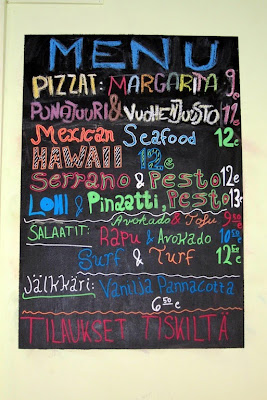 MENU
PIZZAT: MARGARITA 9e
PUNAJUURI & VUOHENJUUSTO 12e
Mexican Seafood 12e
HAWAII 12e
Serrano & Pesto 12e
LOHI & Pinaatti, Pesto 13e
Avokado & Tofu 9
SALAATIT: Rapu & Avokado 10
Surf & Turf 12
Jälkkäri: Vanilja Pannacotta
6
TILAUKSET TISKILTÄ